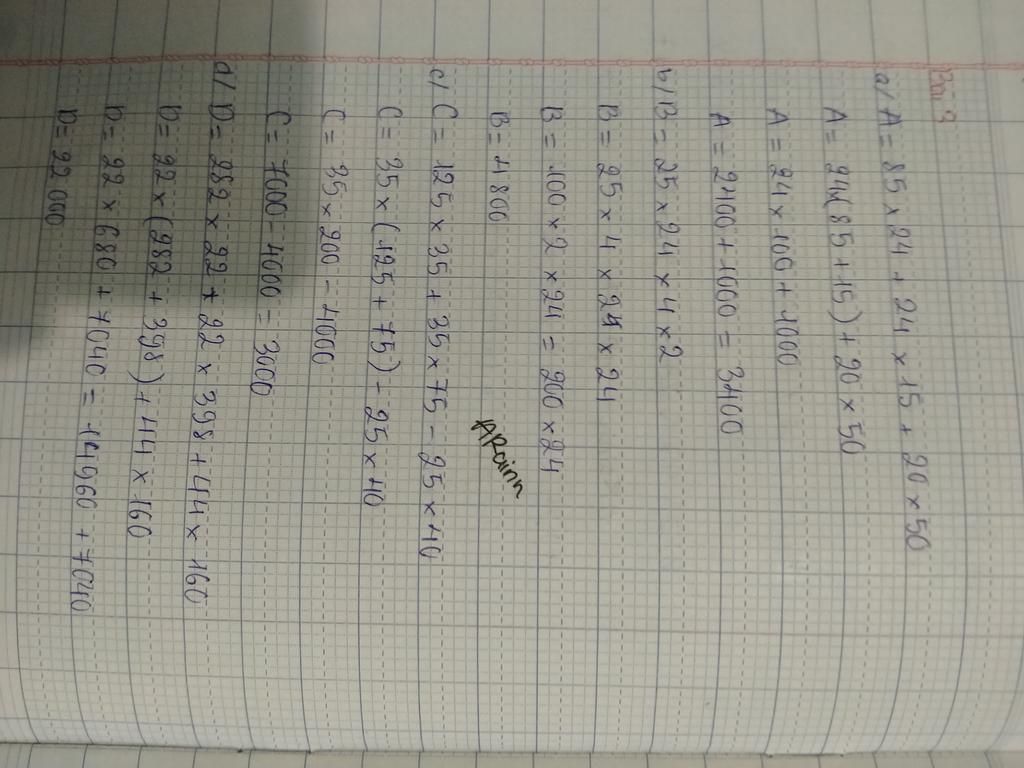 Bài 3
a/ A = 85 x 24 + 24 x 15 + 20 x 50
A = 24(85 + 15) + 20 x 50
A = 24 x 100 + 1000
A = 2400 + 1000 = 3400
b/ B = 25 x 24 x 4 x 2
B = 25 x 4 x 24 x 24
B = 100 x 2 x 24 = 200 x 24
B = 4800
ARainn
c/ C = 125 x 35 + 35 x 75 - 25 x 40
C = 35 x (125 + 75) - 25 x 40
C = 35 x 200 - 4000
C = 7000 - 4000 = 3000
d/ D = 282 x 22 + 22 x 398 + 44 x 160
D = 22 x (282 + 398) + 44 x 160
D = 22 x 680 + 7040 = 14960 + 7040
D = 22 000